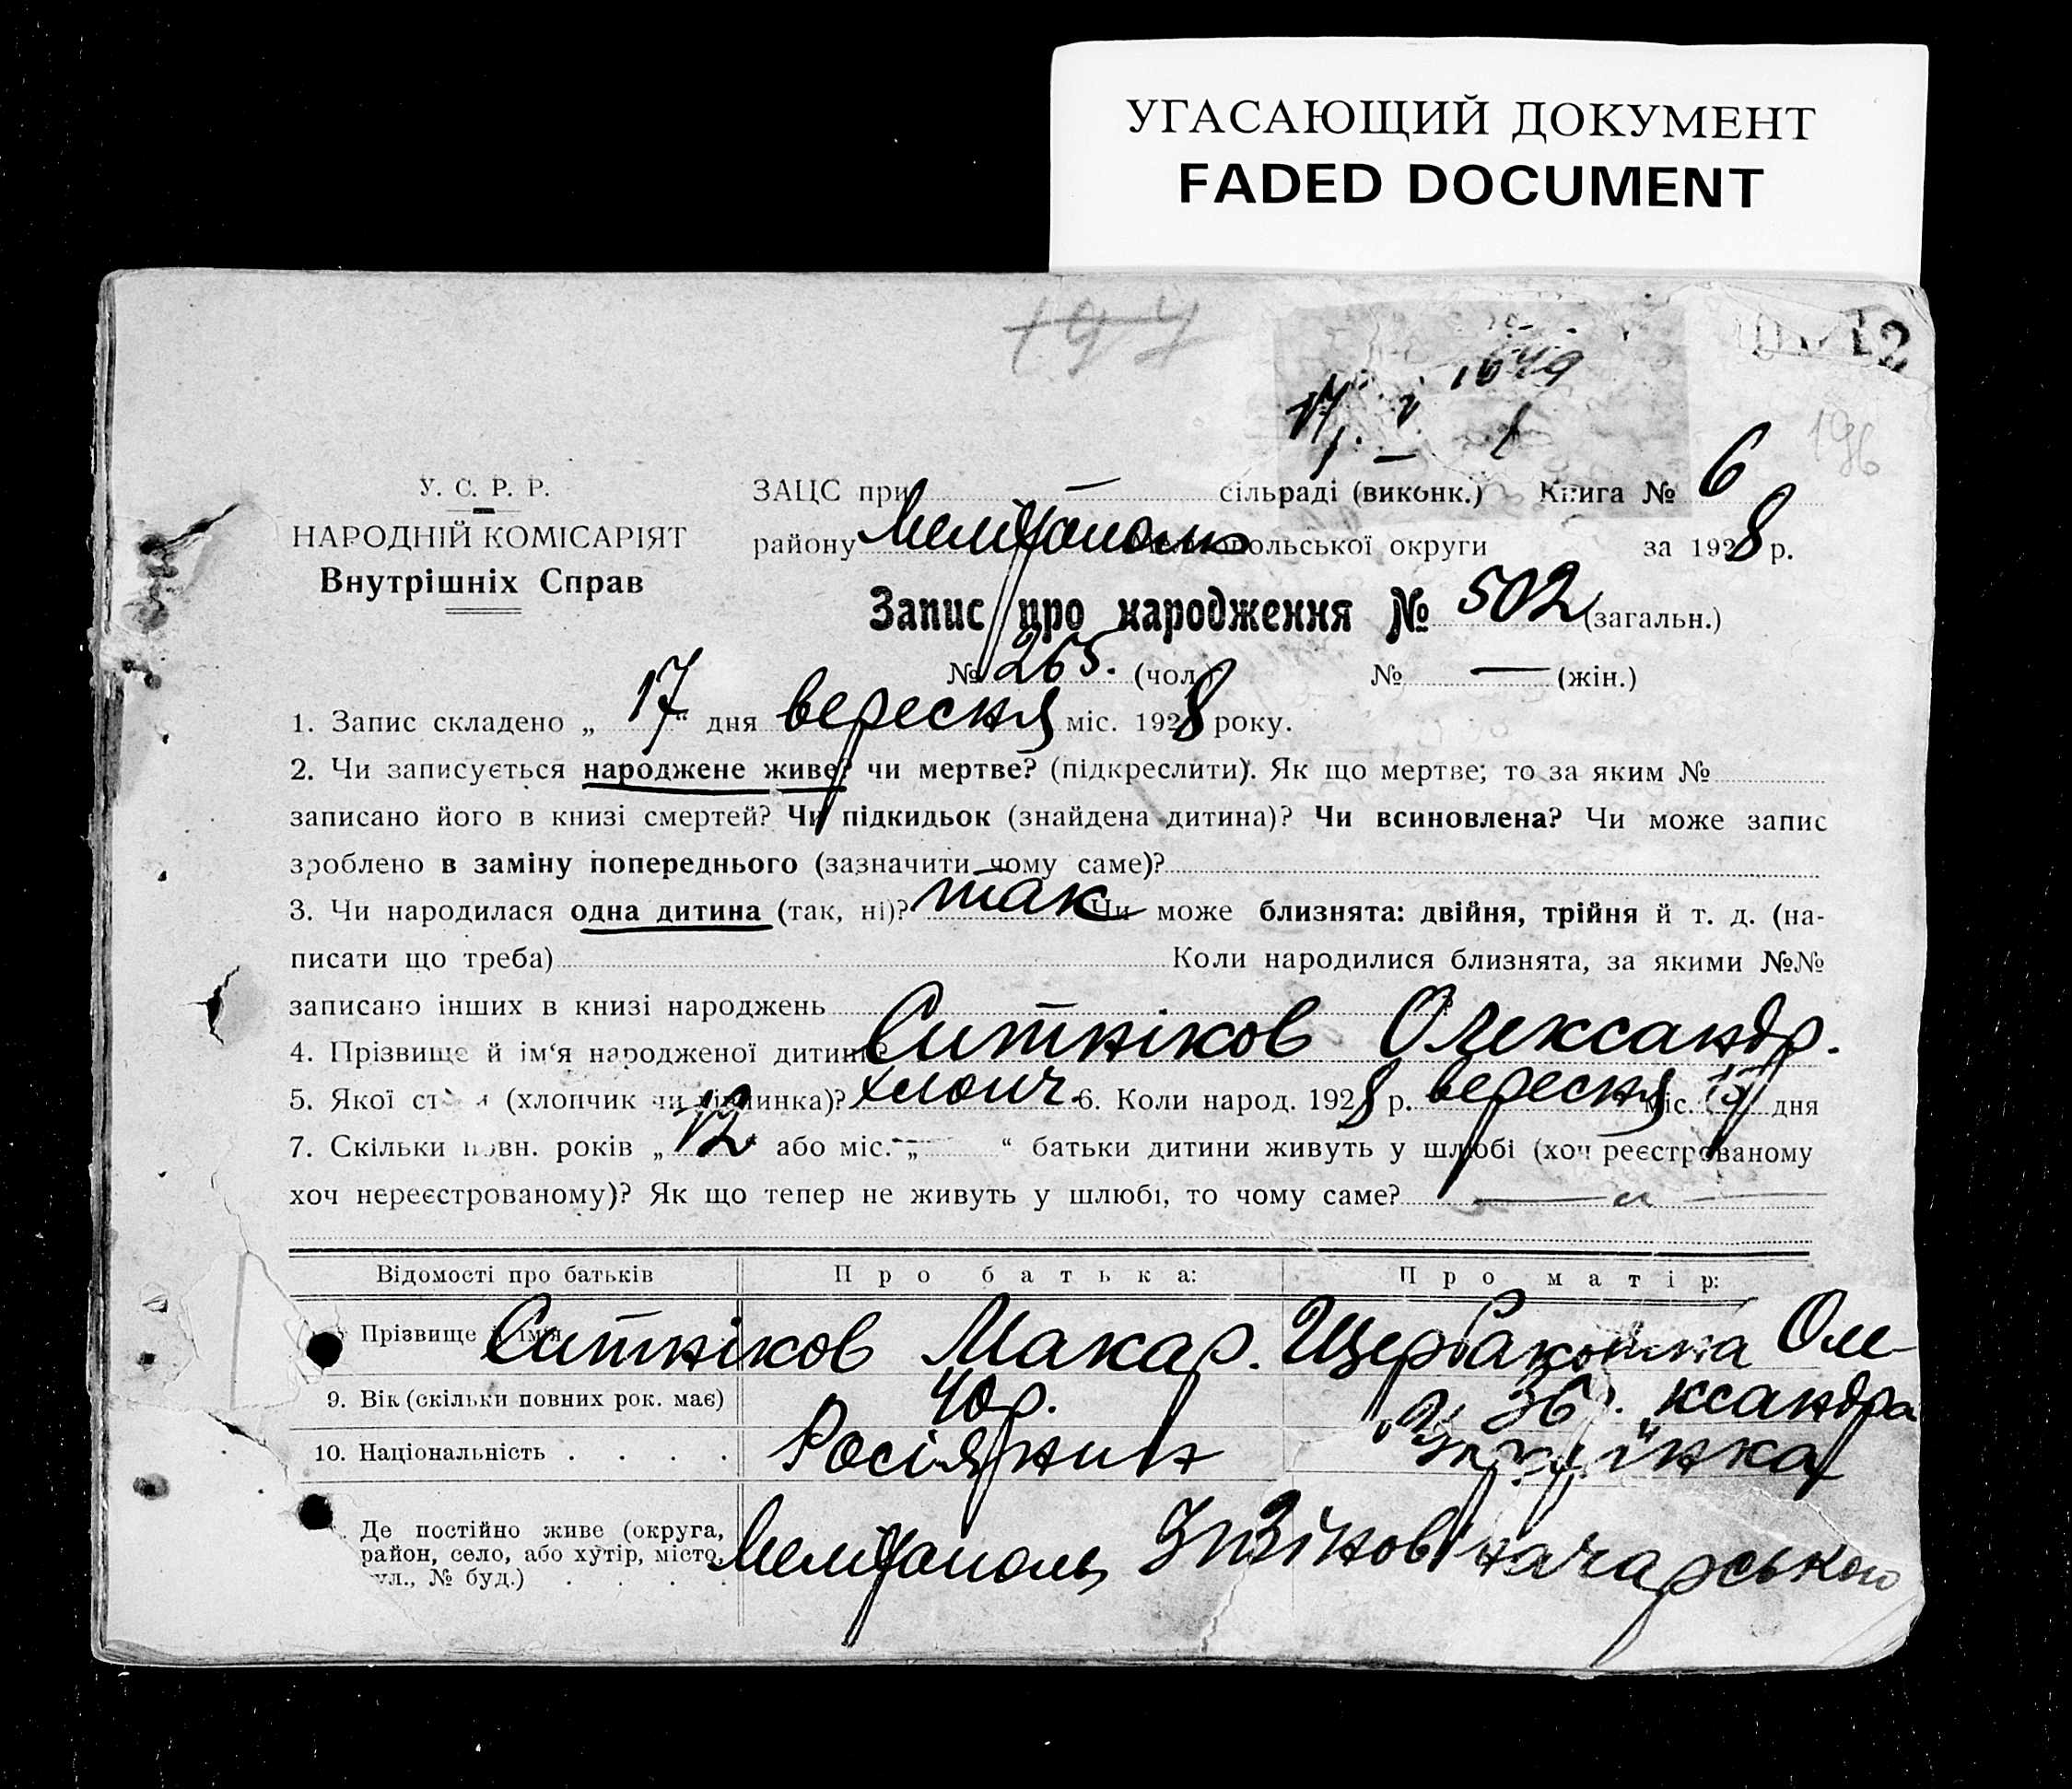 УГАСАЮЩИЙ ДОКУМЕНТ
FADED DOCUMENT
197
12
196
У. С. Р. Р.
НАРОДНІЙ КОМІСАРІЯТ
Внутрішніх Справ
ЗАЦС при — сільраді (виконк.) Книга № 6
району Мелітополь Мелітопольської округи за 1928 р.
Запис про народження № 502 (загальн.)
№ 265. (чол.) № — (жін.)
1. Запис складено „ 17 “ дня вересня міс. 1928 року.
2. Чи записується народжене живе? чи мертве? (підкреслити). Як що мертве; то за яким №
записано його в книзі смертей? Чи підкидьок (знайдена дитина)? Чи всиновлена? Чи може запис
зроблено в заміну попереднього (зазначити чому саме)?
3. Чи народилася одна дитина (так, ні)? так Чи може близнята: двійня, трійня й т. д. (на-
писати що треба) Коли народилися близнята, за якими №№
записано інших в книзі народжень
4. Прізвище й ім‘я народженої дитини? Ситніков Олександр.
5. Якої ст (хлопчик чи дівчинка)? хлопч. 6. Коли народ. 1928 р. вересня міс. дня
7. Скільки повн. років „ 12 “ або міс. „ — “ батьки дитини живуть у шлюбі (хоч реєстрованому
хоч нереєстрованому)? Як що тепер не живуть у шлюбі, то чому саме?
Відомості про батьків Про батька: Про матір:
Прізвище й ім‘я Ситніков Макар. Щербакова Оле-
9. Вік (скільки повних рок. має) 40 р. 36 р. ксандра
10. Національність . . . . Росіянин Українка
Де постійно живе (округа,
район, село, або хутір, місто, Мелітополь
вул., № буд.) . . . .